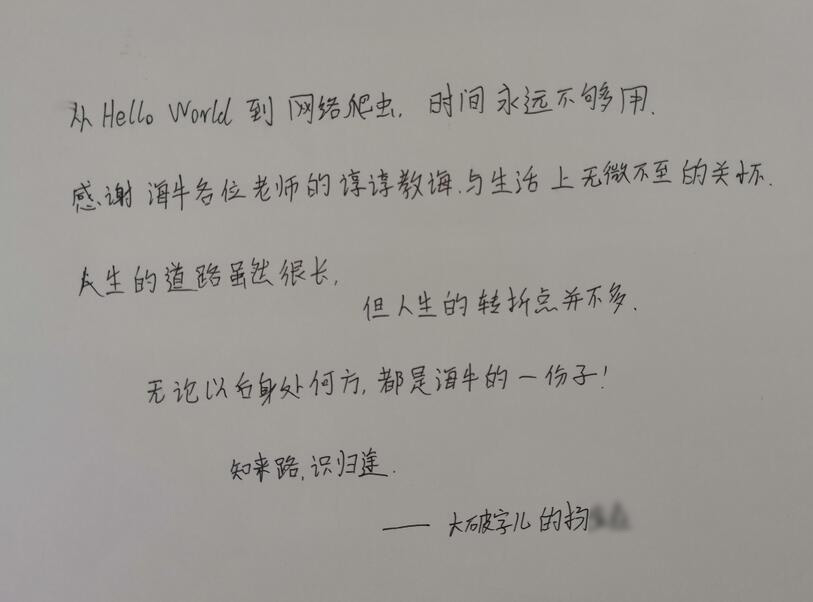 从 Hello World 到 网络爬虫, 时间永远不够用.
感谢 海牛各位老师的谆谆教诲.与生活上无微不至的关怀.
人生的道路虽然很长,
但人生的转折点并不多.
无论以后身处何方,都是海牛的一份子!
知来路,识归途.
—— 大破字儿的扬